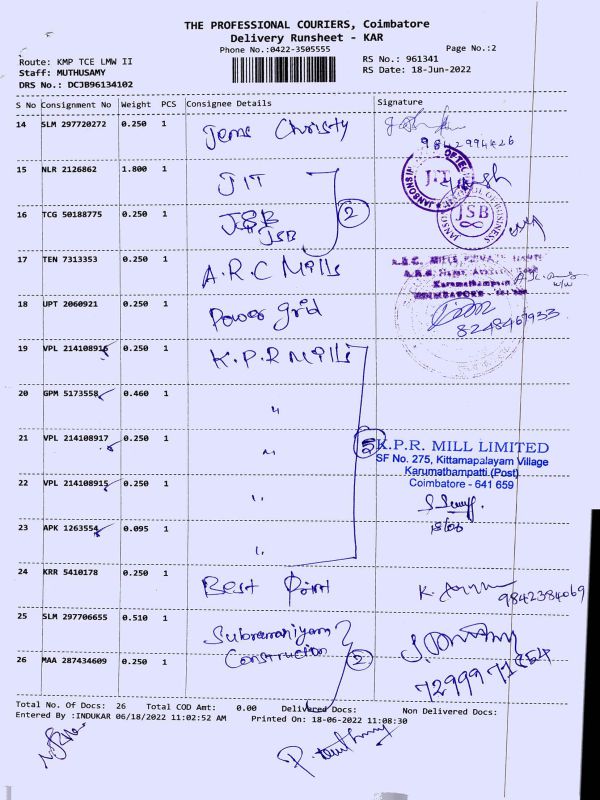 THE PROFESSIONAL COURIERS, Coimbatore
Delivery Runsheet - KAR
Phone No.:0422-3505555
Page No.:2
Route: KMP TCE LMW II
RS No.: 961341
Staff: MUTHUSAMY
RS Date: 18-Jun-2022
DRS No.: DCJB96134102
S No Consignment No Weight PCS Consignee Details Signature
14 SLM 297720272 0.250 1 Jems Christy
9842994426
15 NLR 2126862 1.800 1 JIT
JIT
16 TCG 50188775 0.250 1 JSB 2 JSB
JSB
17 TEN 7313353 0.250 1 A.R.C Mills
18 UPT 2060921 0.250 1 Power grid
8248467933
19 VPL 214108916 0.250 1 K.P.R Mills
20 GPM 5173558 0.460 1 "
21 VPL 214108917 0.250 1 " 5 K.P.R. MILL LIMITED
SF No. 275, Kittamapalayam Village
Karumathampatti (Post)
22 VPL 214108915 0.250 1 " Coimbatore - 641 659
23 APK 1263554 0.095 1 " 18/06
24 KRR 5410178 0.250 1 Best Point
9842384069
25 SLM 297706655 0.510 1 Subramaniyam
Construction 2
26 MAA 287434609 0.250 1
Total No. Of Docs: 26 Total COD Amt: 0.00 Delivered Docs: Non Delivered Docs:
Entered By :INDUKAR 06/18/2022 11:02:52 AM Printed On: 18-06-2022 11:08:30